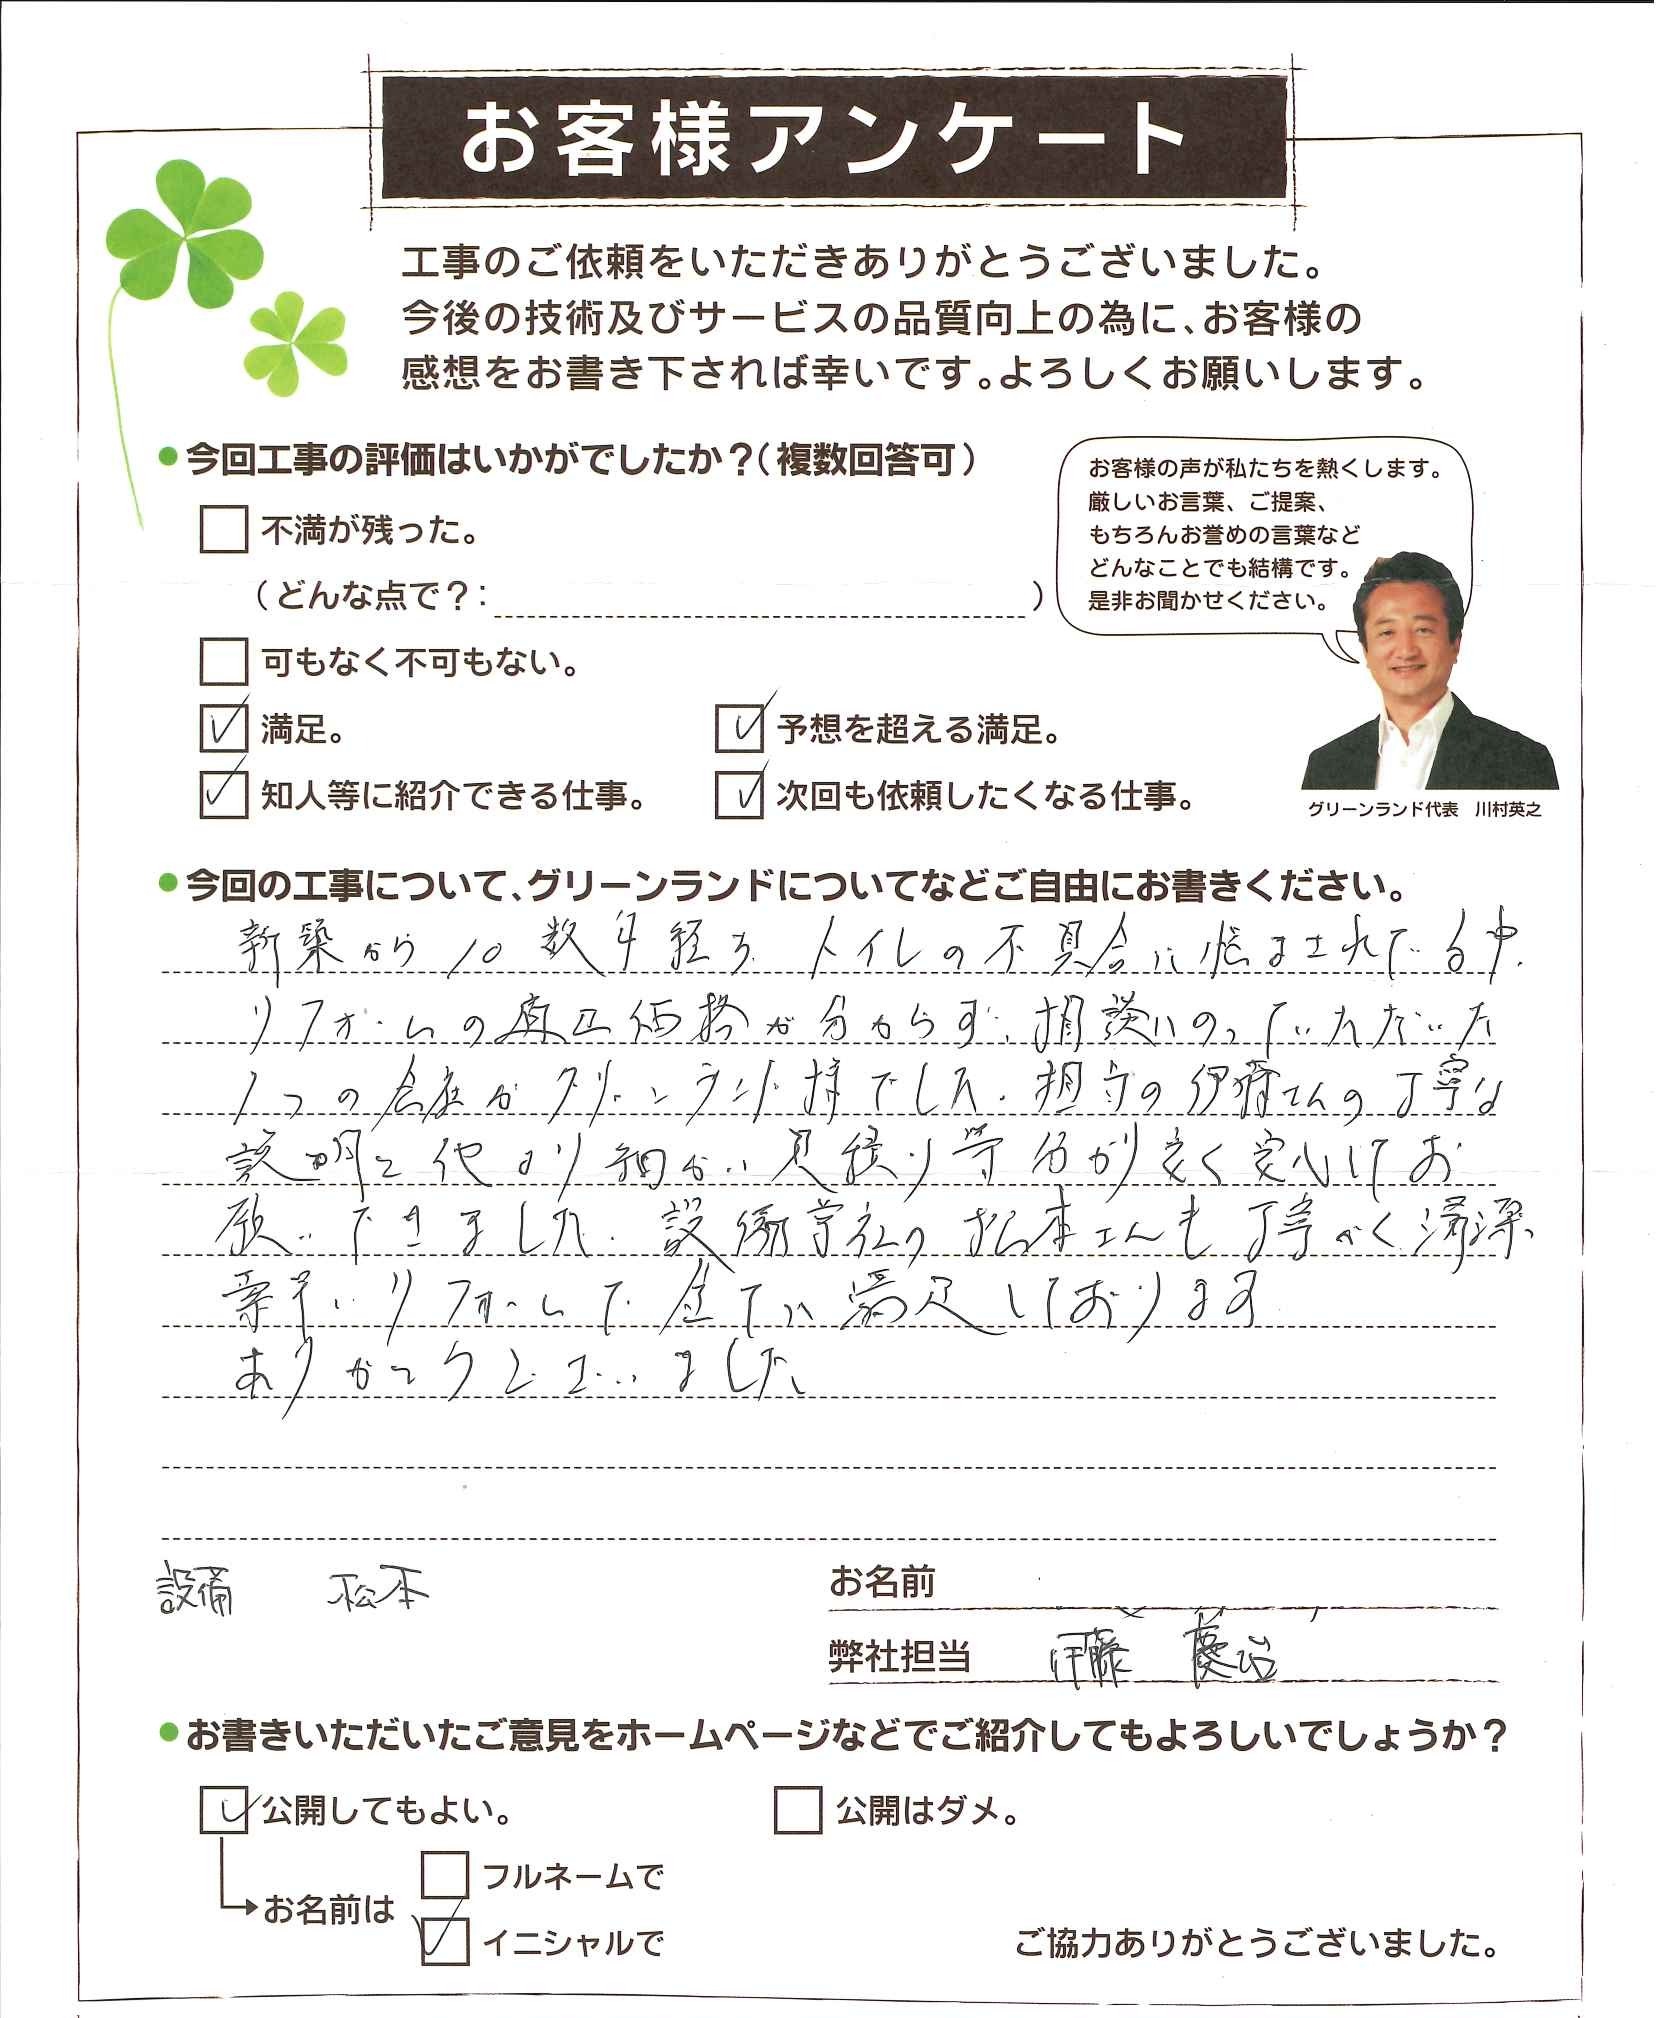 お客様アンケート
工事のご依頼をいただきありがとうございました。
今後の技術及びサービスの品質向上の為に、お客様の
感想をお書き下されば幸いです。よろしくお願いします。
●今回工事の評価はいかがでしたか？（複数回答可）
不満が残った。
（どんな点で？：　）
可もなく不可もない。
満足。
予想を超える満足。
知人等に紹介できる仕事。
次回も依頼したくなる仕事。
お客様の声が私たちを熱くします。
厳しいお言葉、ご提案、
もちろんお誉めの言葉など
どんなことでも結構です。
是非お聞かせください。
グリーンランド代表　川村英之
●今回の工事について、グリーンランドについてなどご自由にお書きください。
新築から10数年経ち トイレの不具合に悩まされている中、
リフォームの適正価格が分からず、相談にのっていただいた
1つの会社がグリーンランド様でした。担当の伊藤さんの丁寧な
説明と他より細かい見積り等 分かり良く安心してお
願いできました。設備会社の松本さんも丁寧かつ清潔
リフォームで全てに満足しております
ありがとうございました
設備　松本
お名前
弊社担当　伊藤 慶治
●お書きいただいたご意見をホームページなどでご紹介してもよろしいでしょうか？
公開してもよい。
公開はダメ。
お名前は
フルネームで
イニシャルで
ご協力ありがとうございました。